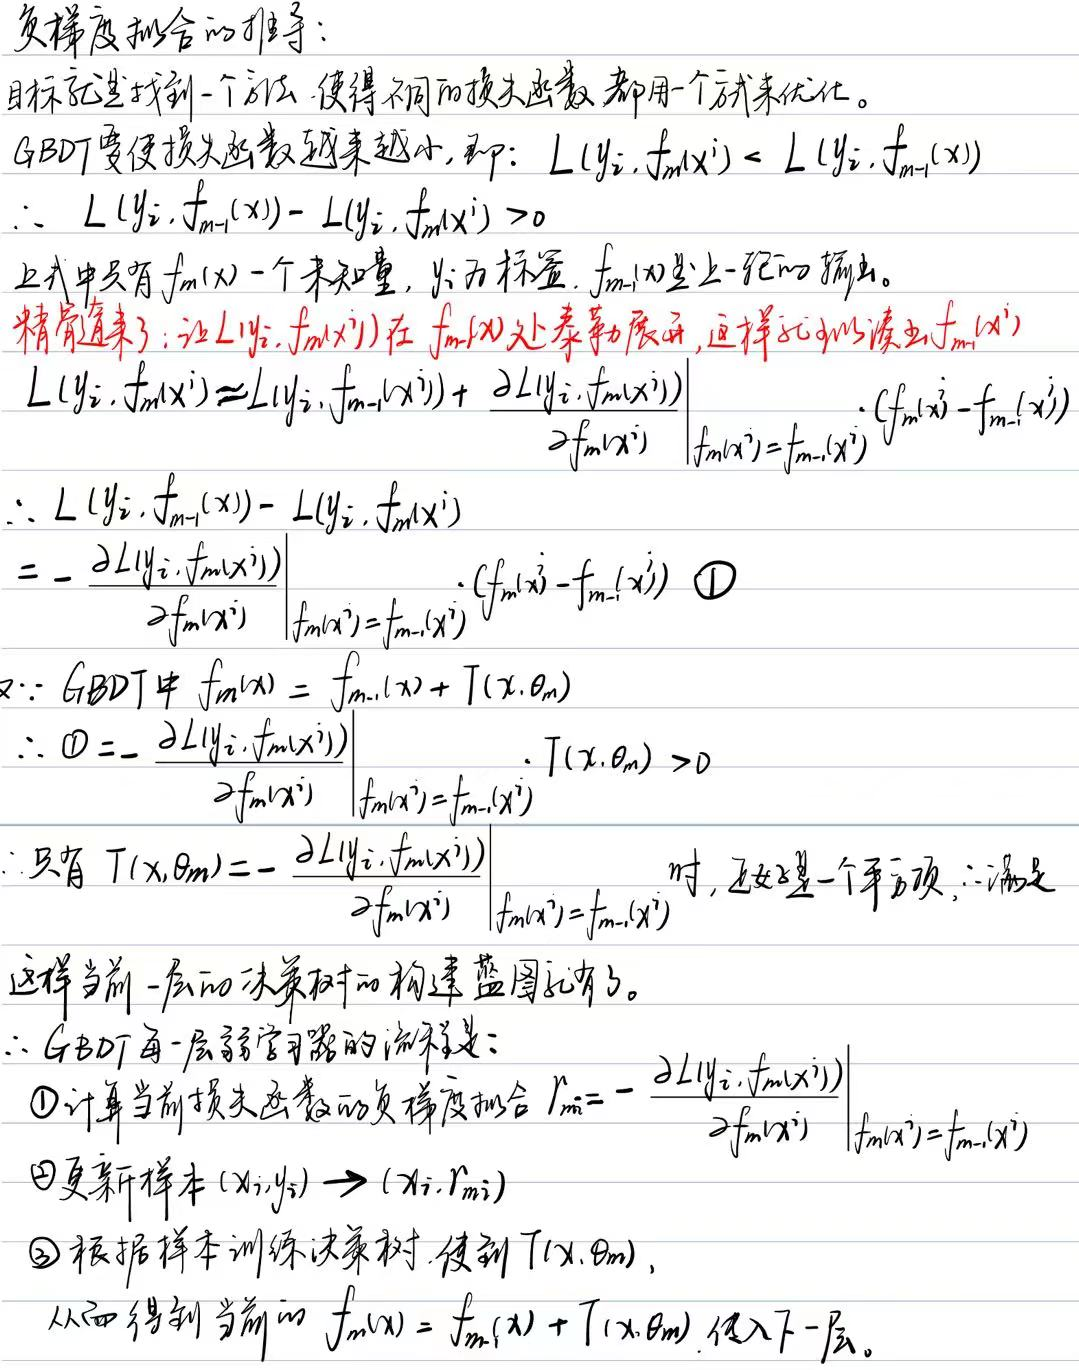 负梯度拟合的推导：
目标就是找到一个方法，使得不同的损失函数都用一个方式来优化。
GBDT要使损失函数越来越小，即：L(y_i, f_m(x^i) < L(y_i, f_{m-1}(x))
∴ L(y_i, f_{m-1}(x)) - L(y_i, f_m(x^i) > 0
上式中只有 f_m(x) 一个未知量，y_i为标签，f_{m-1}(x)是上一轮的输出。
精髓道来了：让L(y_i, f_m(x^i))在 f_{m-1}(x)处泰勒展开，这样就可以凑出f_{m-1}(x^i)
L(y_i, f_m(x^i) ≈ L(y_i, f_{m-1}(x^i)) + ∂L(y_i, f_m(x^i))/∂f_m(x^i) |_{f_m(x^i)=f_{m-1}(x^i)} · (f_m(x^i) - f_{m-1}(x^i))
∴ L(y_i, f_{m-1}(x)) - L(y_i, f_m(x^i)
= - ∂L(y_i, f_m(x^i))/∂f_m(x^i) |_{f_m(x^i)=f_{m-1}(x^i)} · (f_m(x^i) - f_{m-1}(x^i)) ①
又∵ GBDT中 f_m(x) = f_{m-1}(x) + T(x, θ_m)
∴ ① = - ∂L(y_i, f_m(x^i))/∂f_m(x^i) |_{f_m(x^i)=f_{m-1}(x^i)} · T(x, θ_m) > 0
∴只有 T(x, θ_m) = - ∂L(y_i, f_m(x^i))/∂f_m(x^i) |_{f_m(x^i)=f_{m-1}(x^i)} 时，正好是一个平方项，∴满足
这样当前一层的决策树的构建蓝图就有了。
∴ GBDT每一层弱学习器的流程是：
①计算当前损失函数的负梯度拟合 r_{mi} = - ∂L(y_i, f_m(x^i))/∂f_m(x^i) |_{f_m(x^i)=f_{m-1}(x^i)}
②更新样本 (x_i, y_i) → (x_i, r_{mi})
③根据样本训练决策树，得到 T(x, θ_m)，
从而得到当前的 f_m(x) = f_{m-1}(x) + T(x, θ_m)，传入下一层。